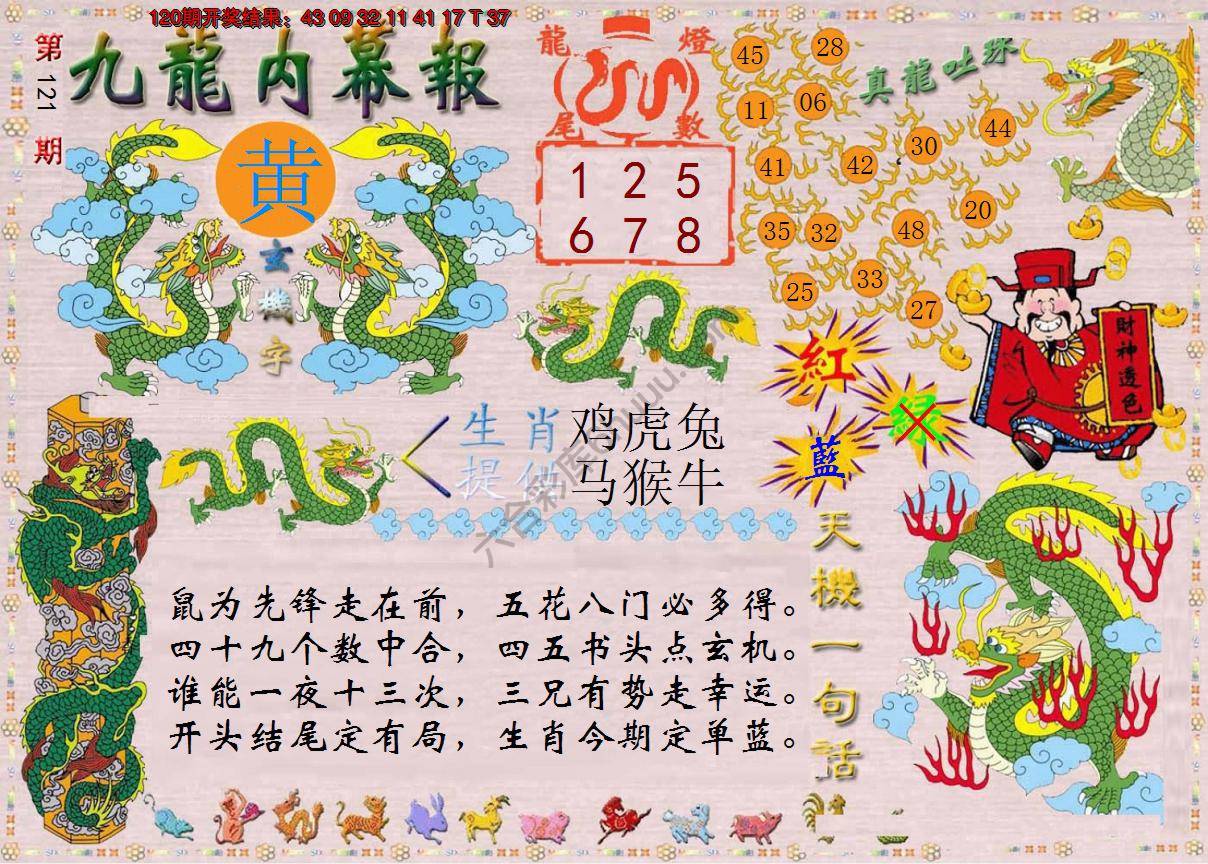 120期开奖结果：43 09 32 11 41 17 T 37
第121期
九龍内幕報
龍燈尾數
1 2 5
6 7 8
真龍吐珠
45 28
11 06
41 42 30 44
35 32 48 20
25 33 27
黄
玄機字
紅
綠
藍
財神透色
生肖提供
鸡虎兔
马猴牛
天機一句話
鼠为先锋走在前，五花八门必多得。
四十九个数中合，四五书头点玄机。
谁能一夜十三次，三兄有势走幸运。
开头结尾定有局，生肖今期定单蓝。